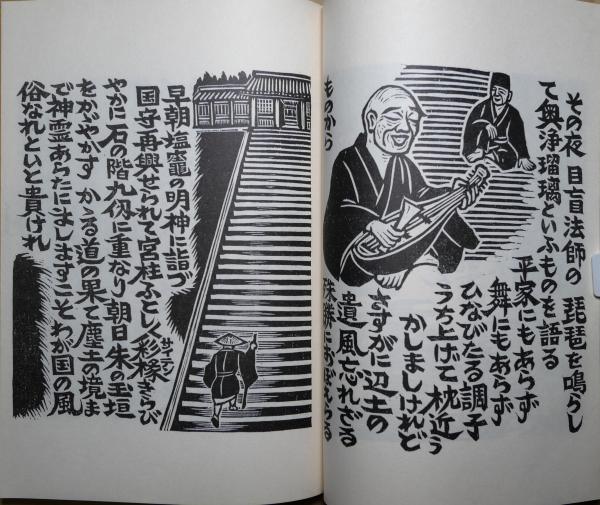 その夜 目盲法師の 琵琶を鳴らし
て奥浄瑠璃といふものを語る
平家にもあらず
舞にもあらず
ひなびたる調子
うち上げて枕近う
かしましけれど
さすがに辺土の
遺風忘れざる
ものから
殊勝におぼえらる
早朝塩竈の明神に詣づ
国守再興せられて宮柱ふとしく彩椽きらび
サイテン
やかに石の階九仭に重なり朝日朱の玉垣
をかがやかす かゝる道の果て塵土の境ま
で神霊あらたにましますこそわが国の風
俗なれといと貴けれ